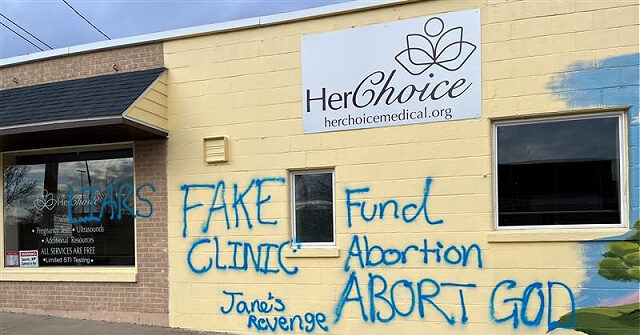 HerChoice
herchoicemedical.org
LIARS
HerChoice
• Pregnancy Tests • Ultrasounds
• Additional Resources
ALL SERVICES ARE FREE
•Limited STI Testing•
FAKE
CLINIC
Fund
Abortion
ABORT GOD
Jane's
Revenge